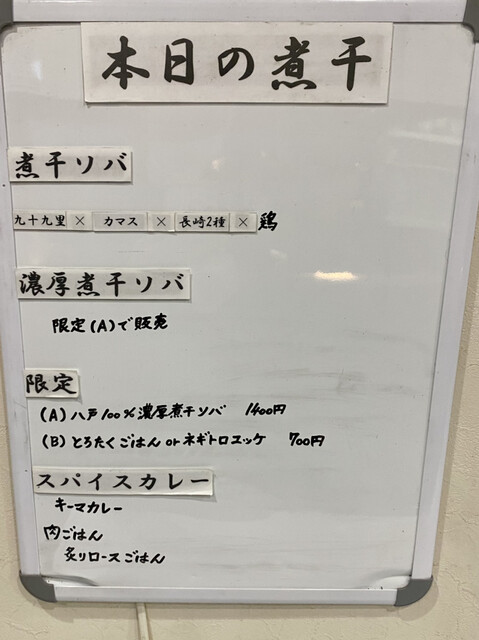 本日の煮干
煮干ソバ
九十九里 × カマス × 長崎2種 × 鶏
濃厚煮干ソバ
限定(A)で販売
限定
(A) 八戸100%濃厚煮干ソバ 1400円
(B) とろたくごはん or ネギトロユッケ 700円
スパイスカレー
キーマカレー
肉ごはん
炙りロースごはん